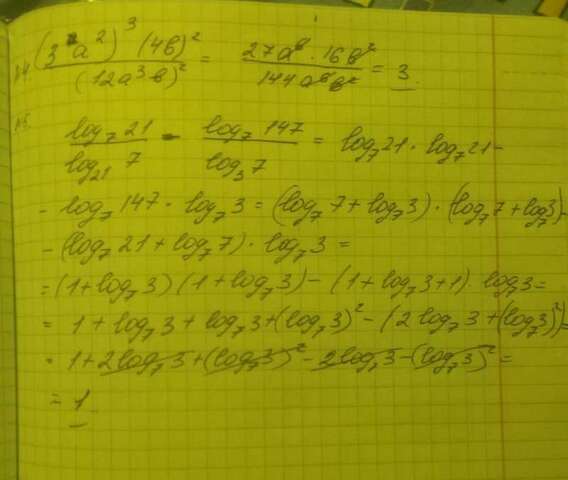 №4. (3a²)³(4b)² / (12a³b)² = 27a⁶·16b² / 144a⁶b² = 3.
№5.
log₇21 / log₂₁7 - log₇147 / log₃7 = log₇21·log₇21-
- log₇147·log₇3 = (log₇7+log₇3)·(log₇7+log₇3)-
-(log₇21+log₇7)·log₇3 =
= (1+log₇3)(1+log₇3)-(1+log₇3+1)·log₇3=
= 1+log₇3+log₇3+(log₇3)²-(2log₇3+(log₇3)²)=
= 1+2log₇3+(log₇3)²-2log₇3-(log₇3)²=
= 1